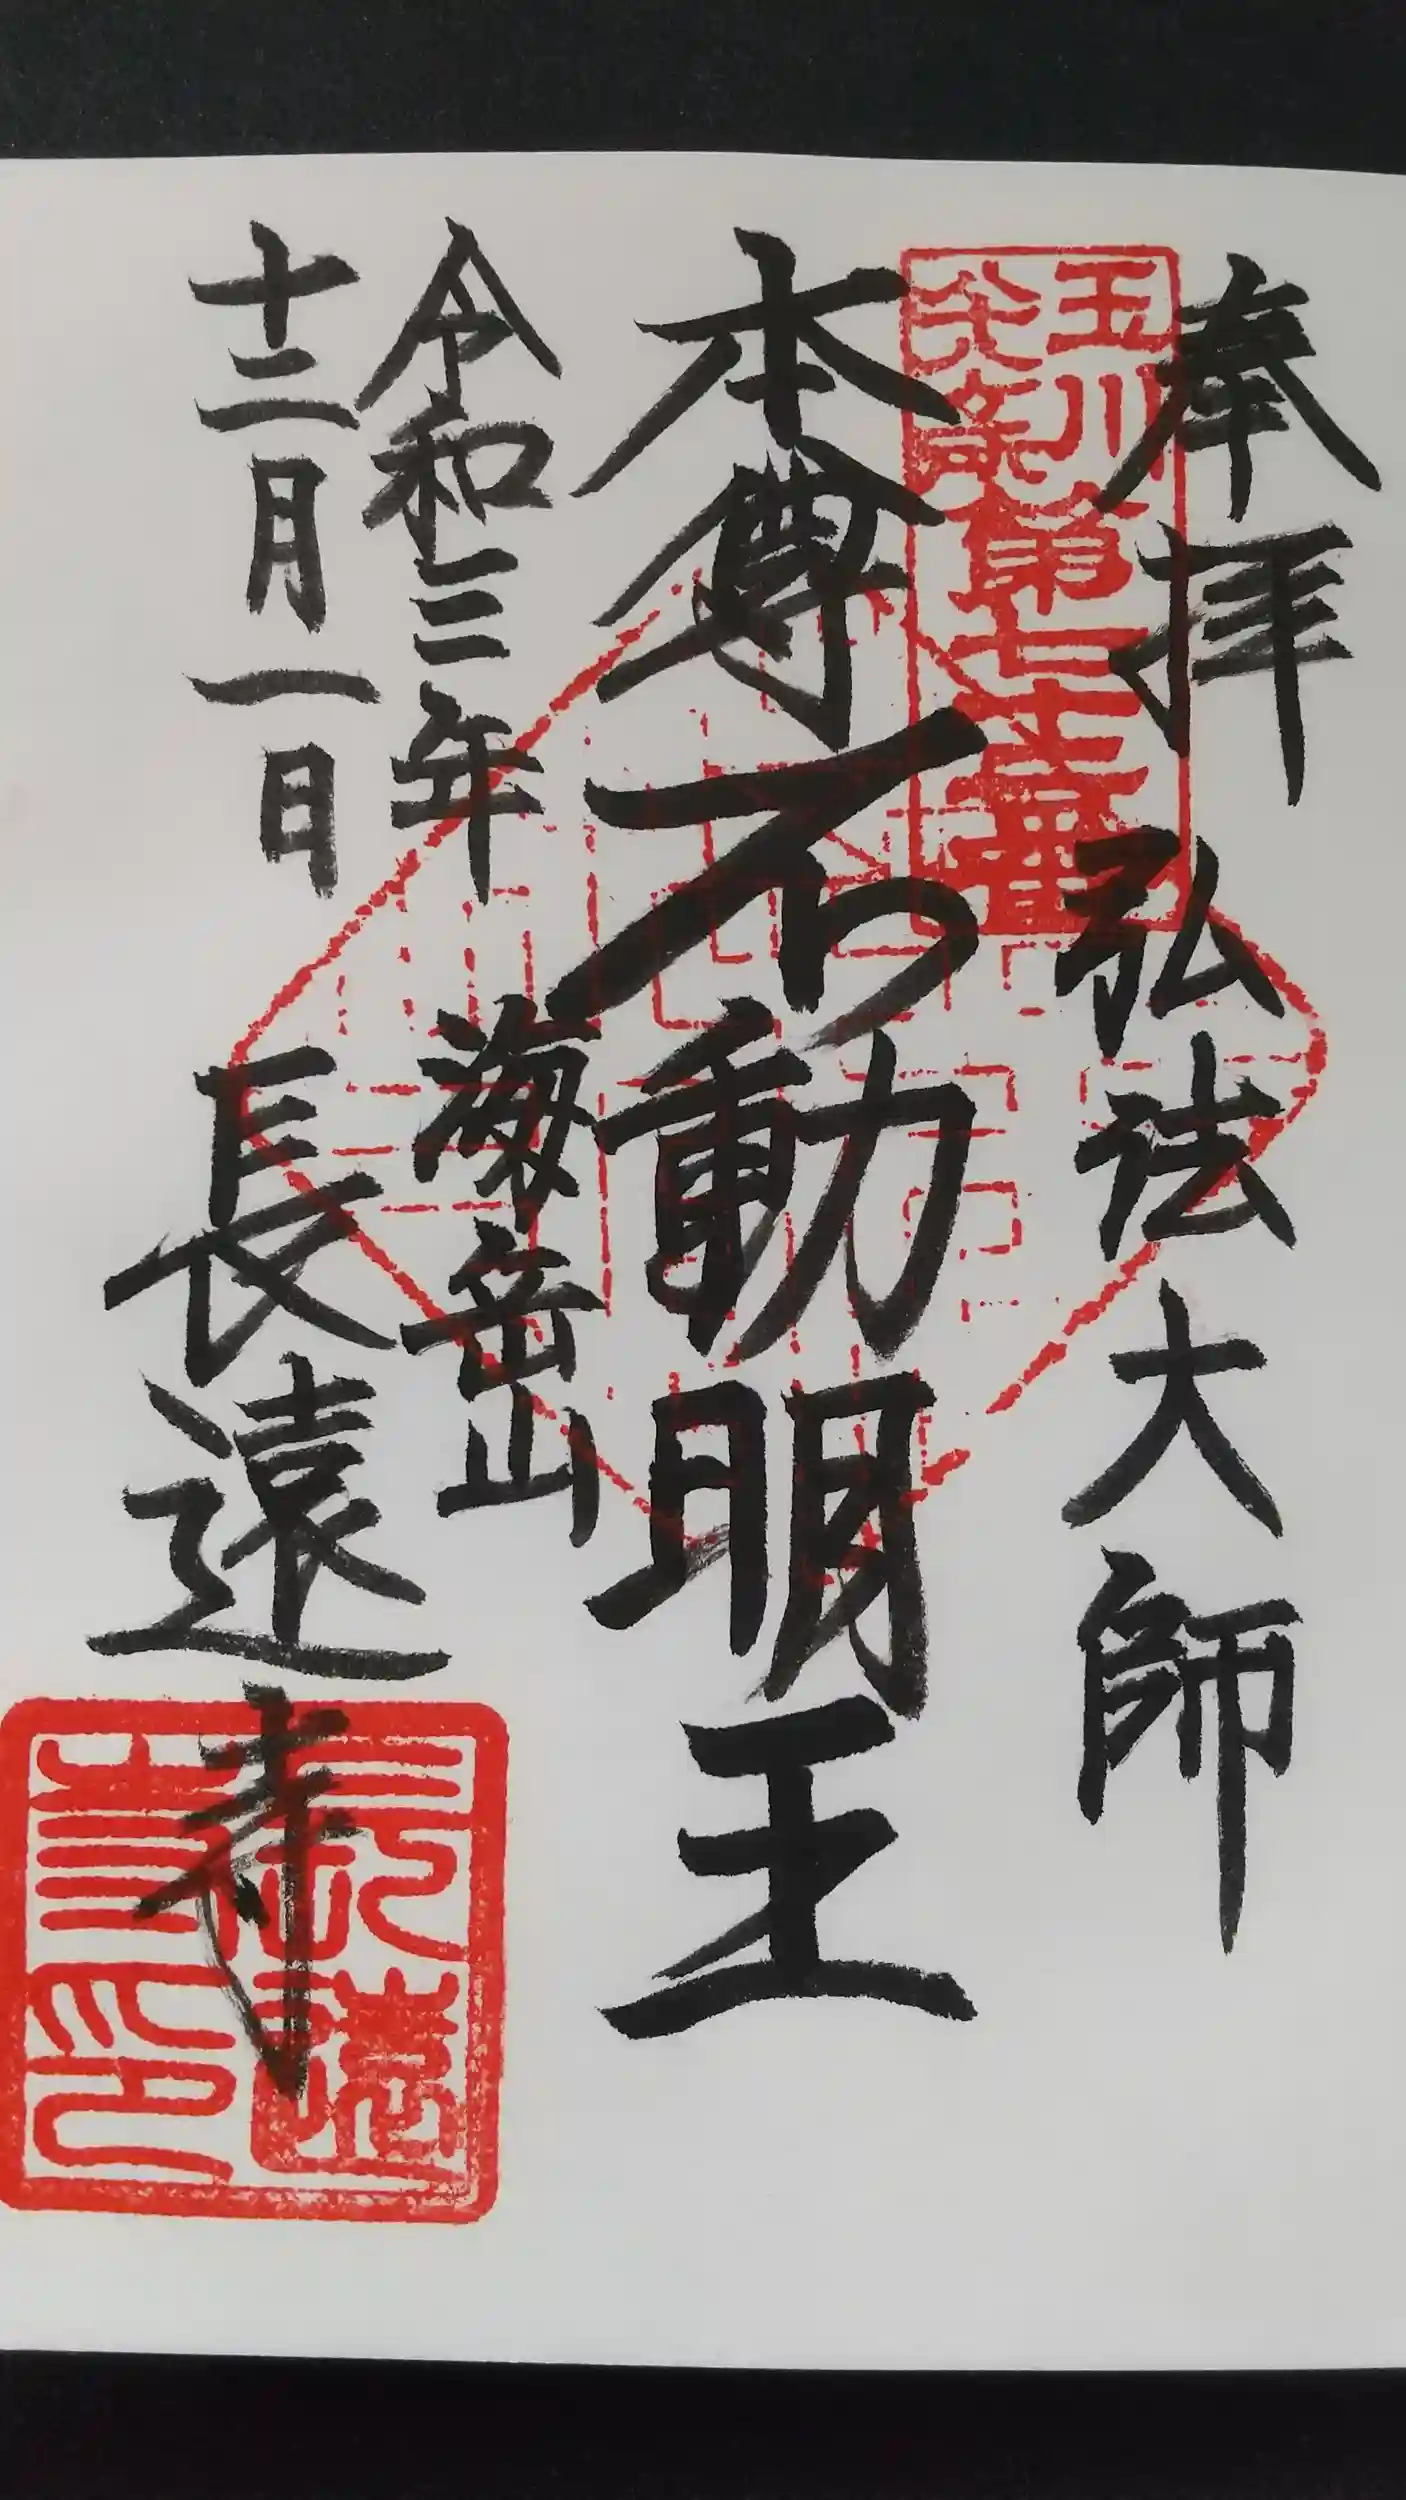 奉拝 弘法大師
玉川
八十八ヶ所第七十二番
本尊不動明王
令和三年 海岳山
十二月一日 長遠寺
長遠
寺印